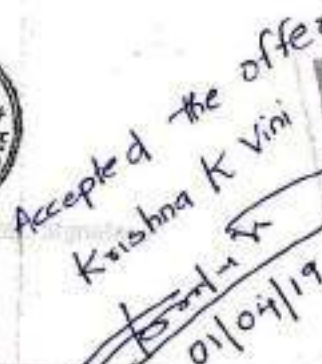 Accepted the offe
Krishna K Vini
01/04/19